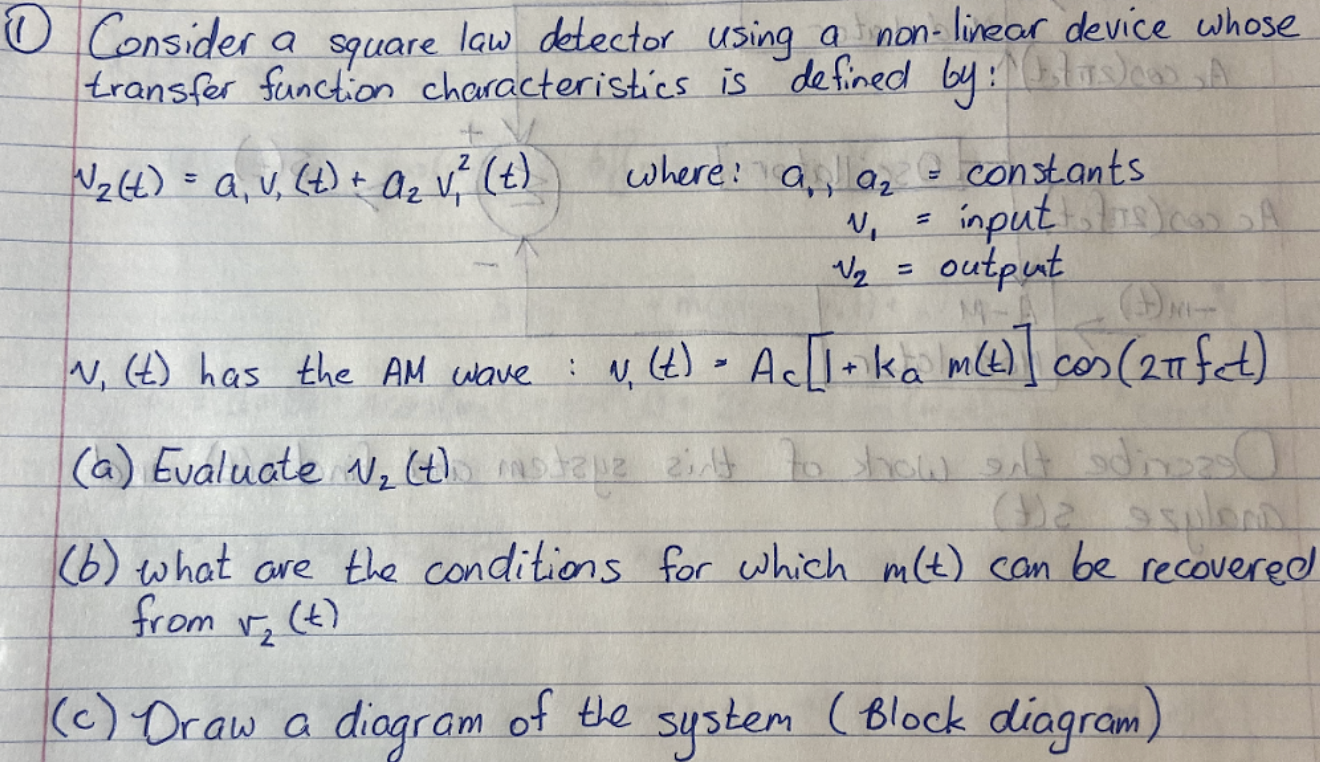 ① Consider a square law detector using a non-linear device whose
transfer function characteristics is defined by:
v₂(t) = a₁ v₁(t) + a₂ v₁²(t) where: a₁, a₂ = constants
v₁ = input
v₂ = output
v₁(t) has the AM wave : v₁(t) = Ac[1 + ka m(t)] cos(2πfct)
(a) Evaluate v₂(t)
(b) what are the conditions for which m(t) can be recovered
from v₂(t)
(c) Draw a diagram of the system (Block diagram)